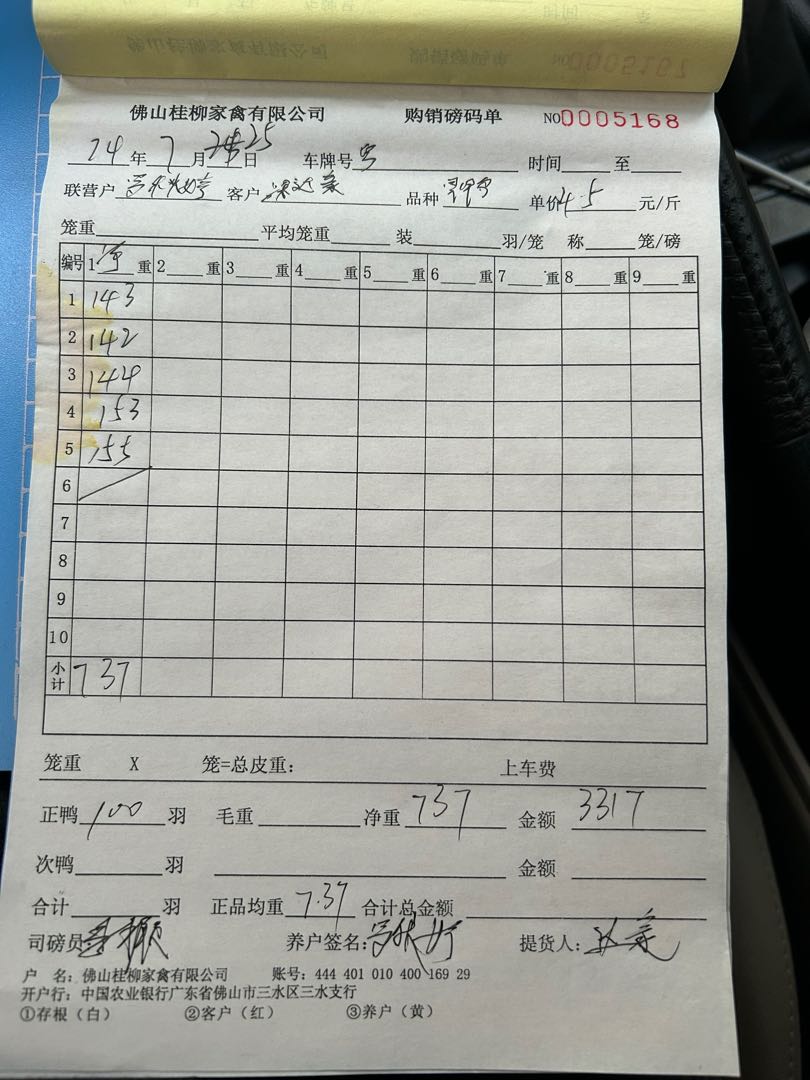 佛山桂柳家禽有限公司 购销磅码单 NO0005168
24年7月25日 车牌号 时间 至
联营户 客户 品种 单价4.5元/斤
笼重 平均笼重 装 羽/笼 称 笼/磅
编号 1 重 2 重 3 重 4 重 5 重 6 重 7 重 8 重 9 重
1 143
2 142
3 144
4 153
5 155
6
7
8
9
10
小计 737
笼重 X 笼=总皮重： 上车费
正鸭100羽 毛重 净重737 金额3317
次鸭 羽 金额
合计 羽 正品均重7.37 合计总金额
司磅员 养户签名： 提货人：
户 名：佛山桂柳家禽有限公司 账号：444 401 010 400 169 29
开户行：中国农业银行广东省佛山市三水区三水支行
①存根（白） ②客户（红） ③养户（黄）